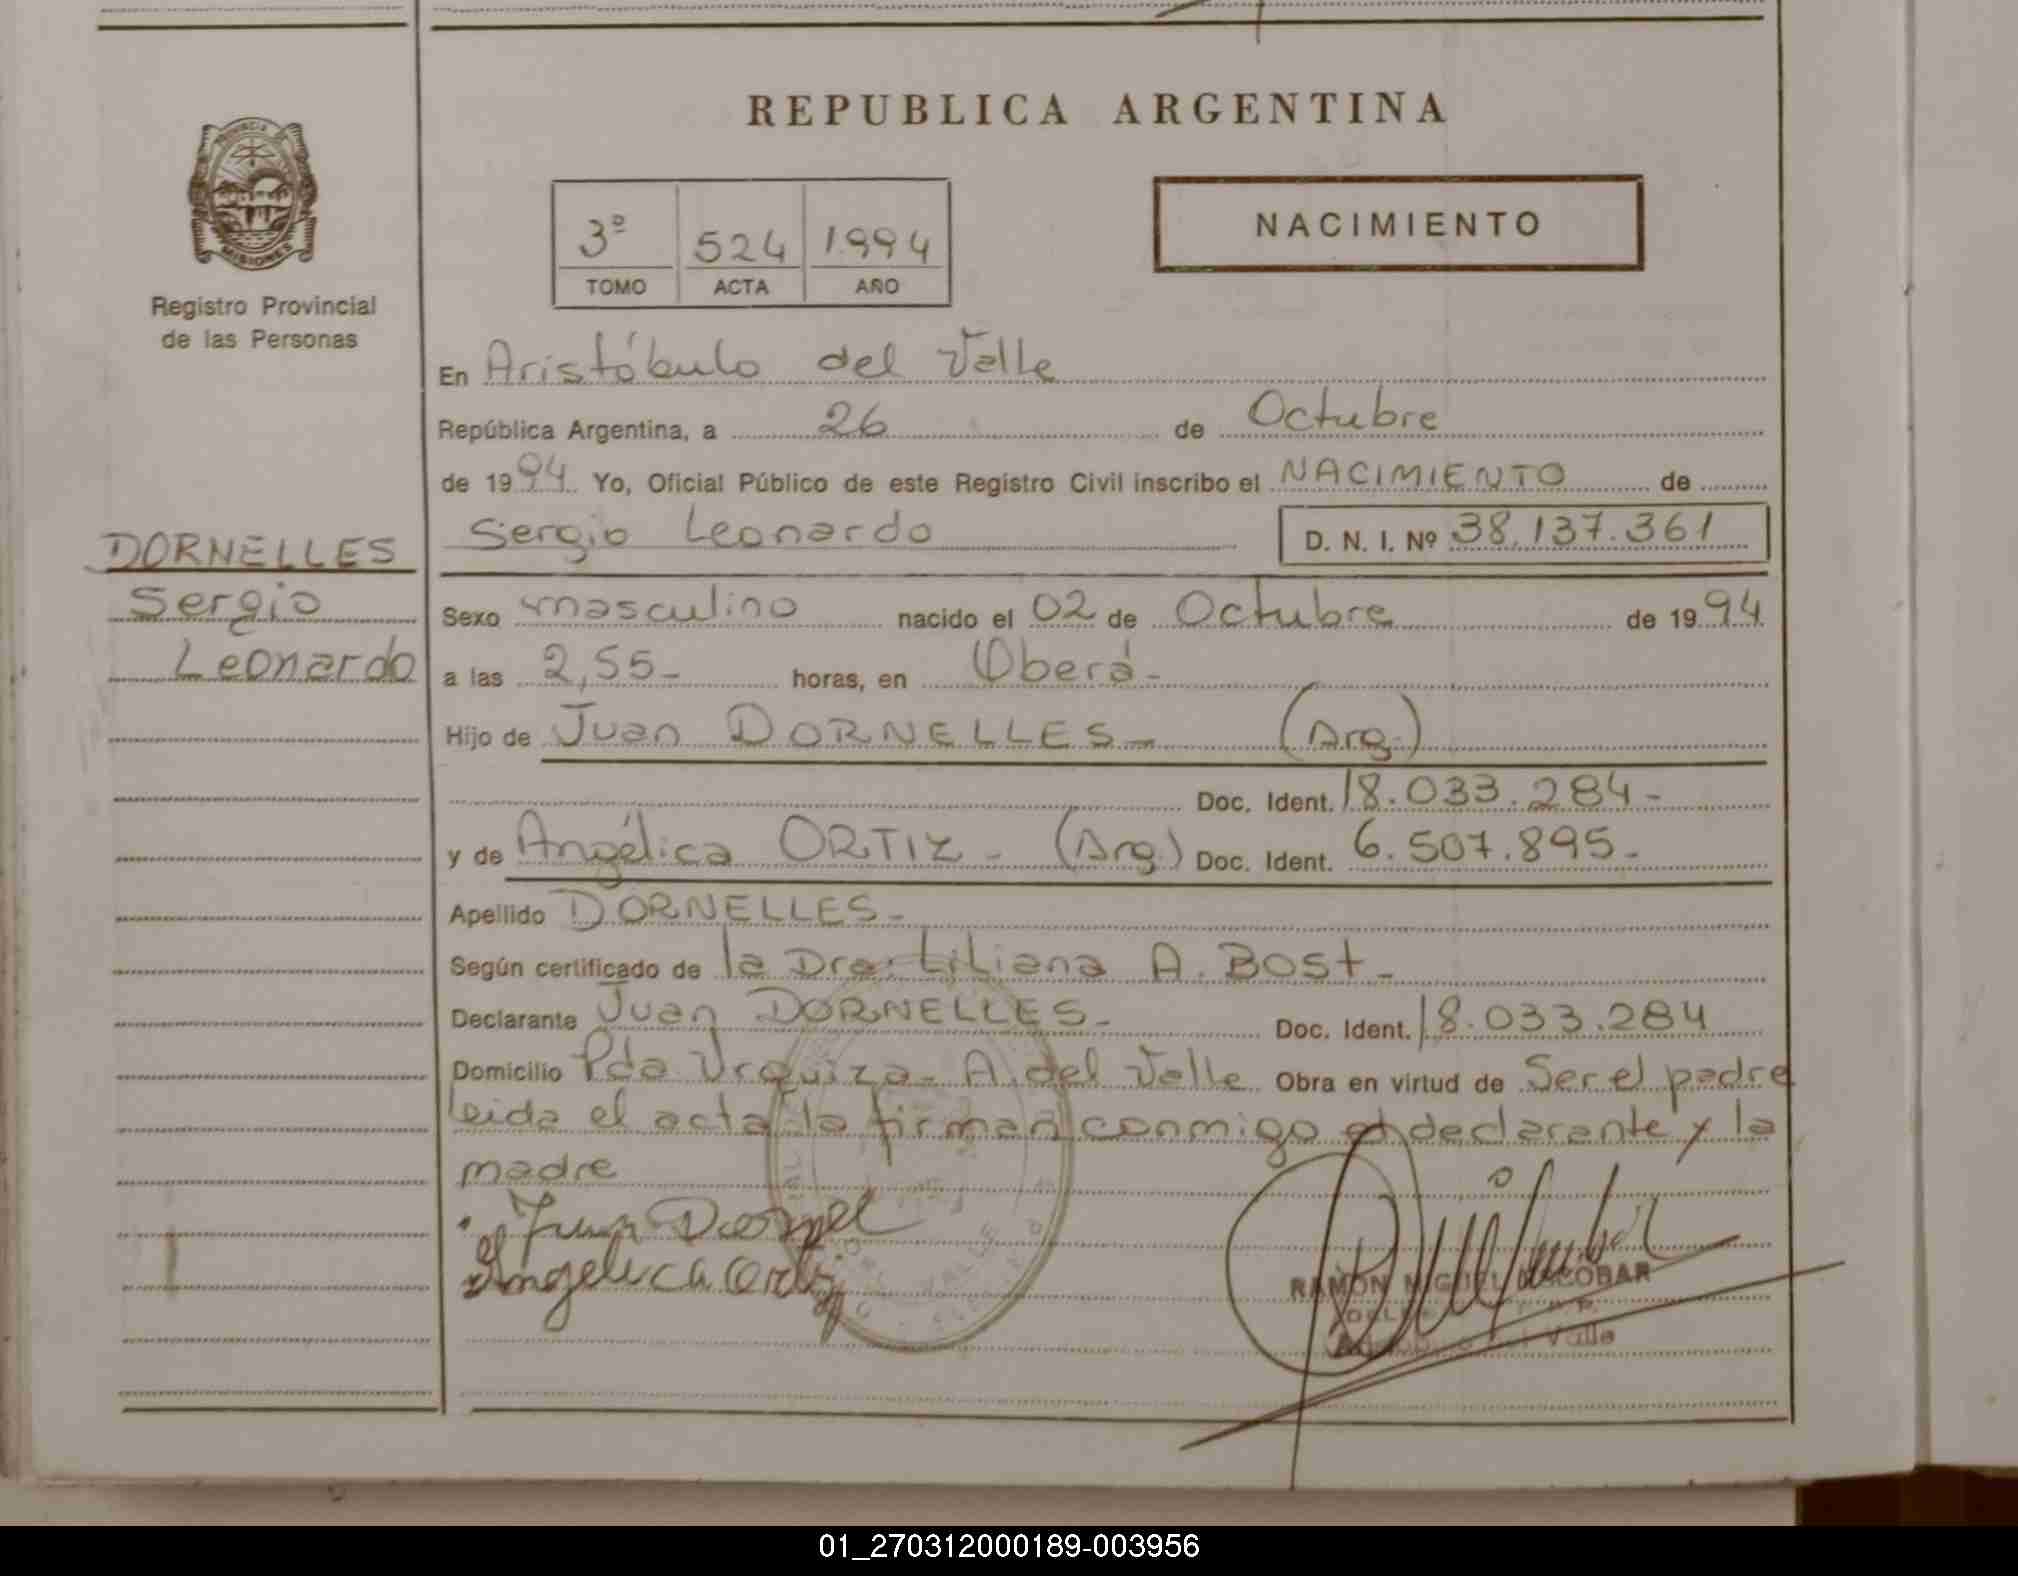 REPUBLICA ARGENTINA
PROVINCIA
MISIONES
Registro Provincial
de las Personas
3º 524 1994
TOMO ACTA AÑO
NACIMIENTO
En Aristóbulo del Valle
República Argentina, a 26 de Octubre
de 1994 Yo, Oficial Público de este Registro Civil inscribo el NACIMIENTO de
Sergio Leonardo D. N. I. Nº 38.137.361
DORNELLES
Sergio
Leonardo
Sexo masculino nacido el 02 de Octubre de 1994
a las 2,55- horas, en Oberá-
Hijo de Juan DORNELLES- (Arg.)
Doc. Ident. 18.033.284-
y de Angélica ORTIZ- (Arg.) Doc. Ident. 6.507.895-
Apellido DORNELLES-
Según certificado de la Dra. Liliana A. Bost-
Declarante Juan DORNELLES- Doc. Ident. 18.033.284
Domicilio Pda Urquiza- A. del Valle Obra en virtud de Ser el padre
leida el acta la firman conmigo el declarante y la
madre
Juan Dornel
Angelica Ortiz
RAMON MIGUEL ESCOBAR
del Valle
01_270312000189-003956